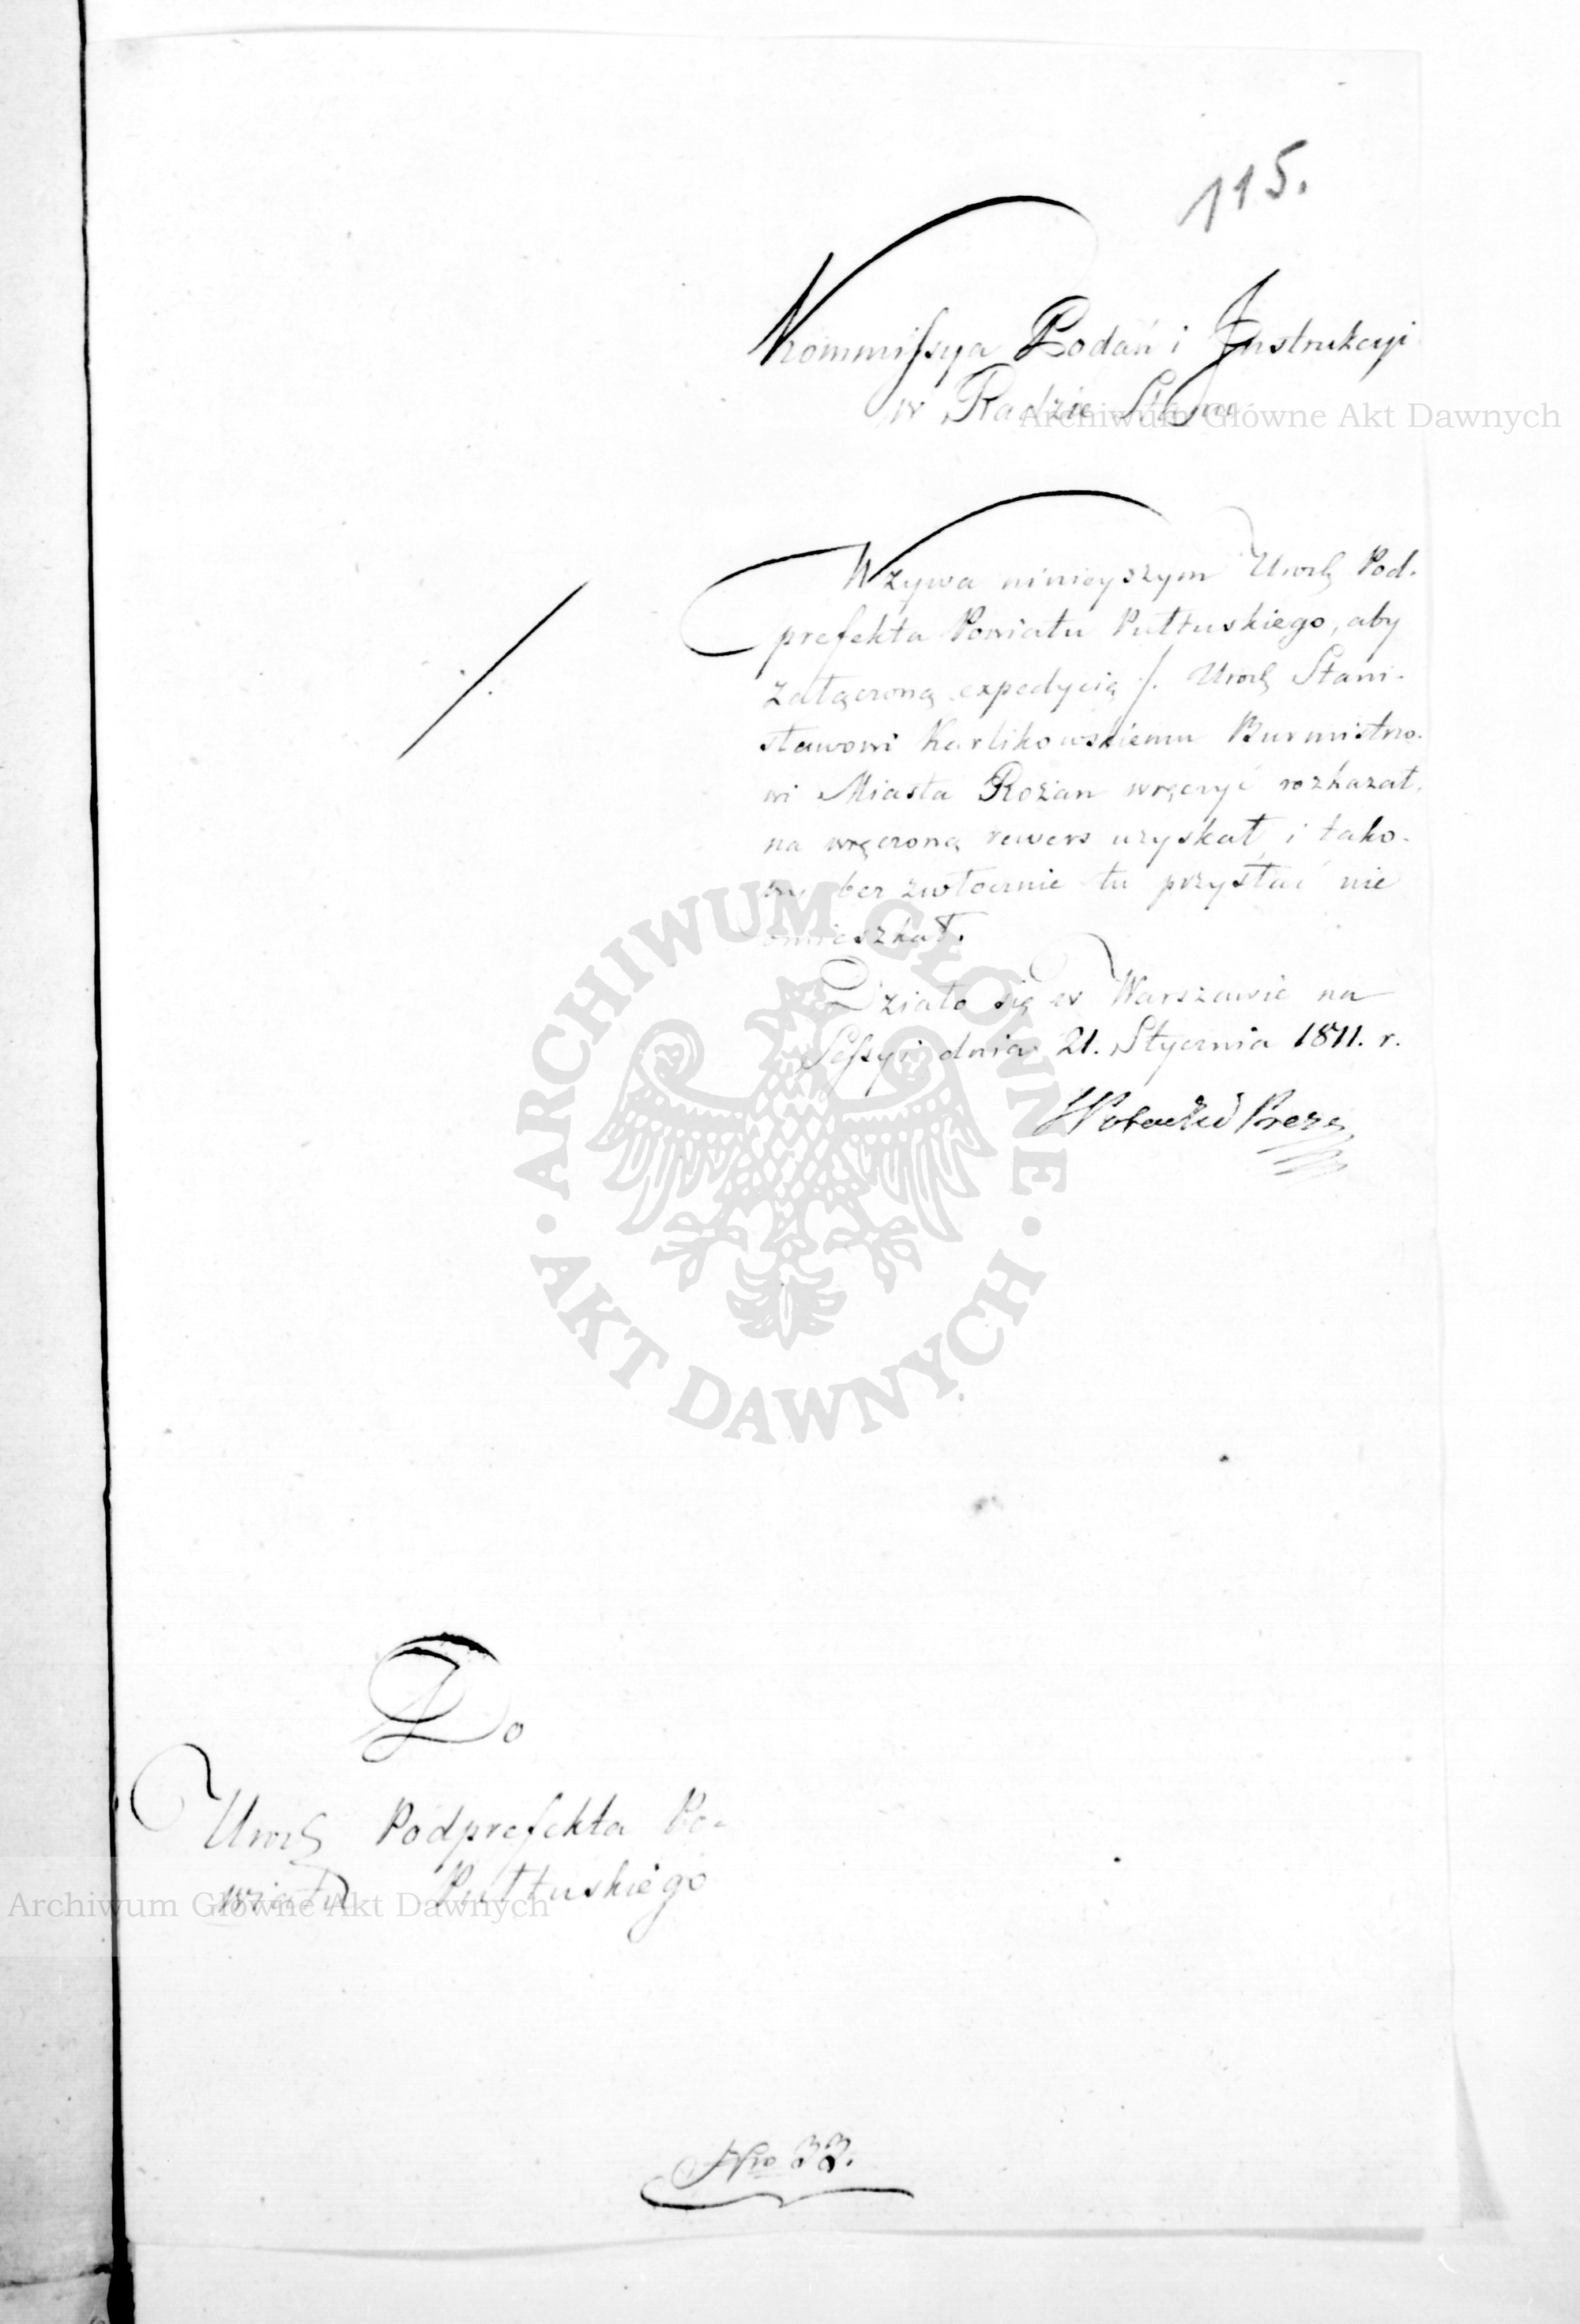 115.
Kommissya Podań i Instrukcyi
w Radzie Stanu
Archiwum Główne Akt Dawnych
Wzywa ninieyszym Urodz Pod-
prefekta Powiatu Pułtuskiego, aby
załączoną expedycią ./. Urodz Stani-
sławowi Karlikowskiemu Burmistrzo-
wi Miasta Rożan wręczyć rozkazał,
na wręczoną rewers uzyskał, i tako-
wy bez zwłocznie tu przysłać nie
omieszkał.
Działo się w Warszawie na
Sessyi dnia 21. Stycznia 1811. r.
Prezs
ARCHIWUM GŁÓWNE
AKT DAWNYCH
Do
Urodz Podprefekta Po-
wiatu Pułtuskiego
Archiwum Główne Akt Dawnych
Nro 33.